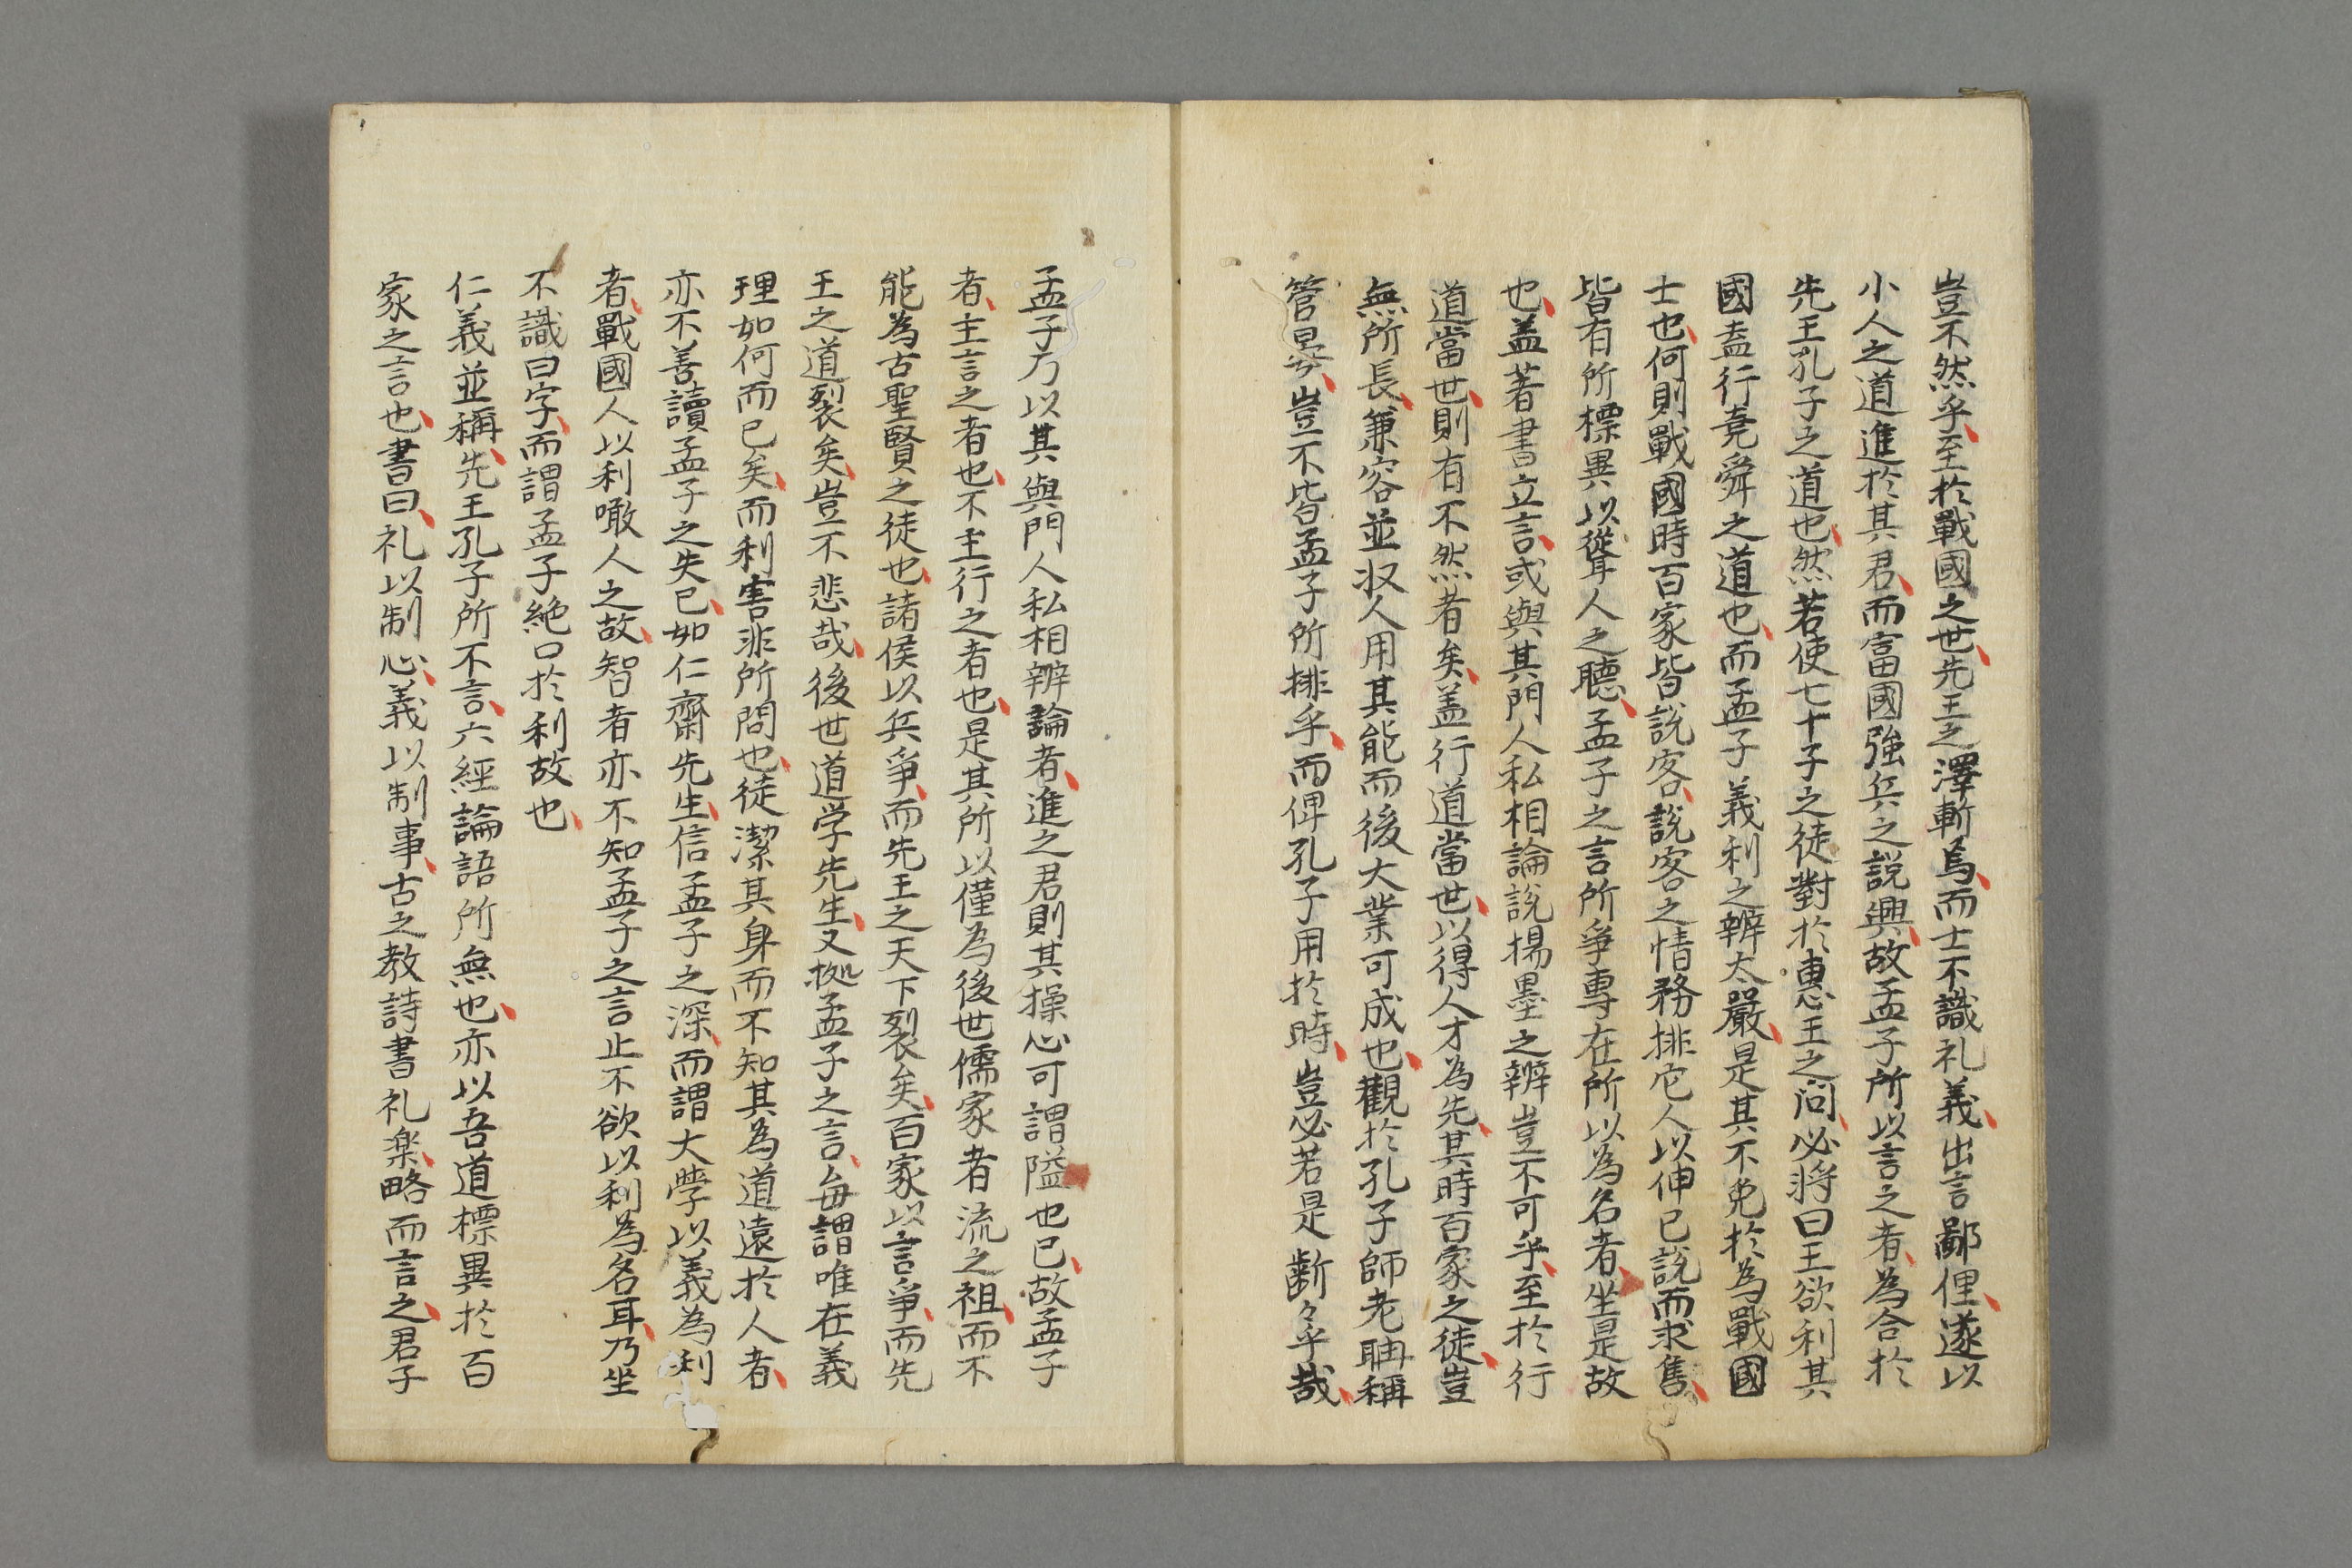 豈不然乎至於戰國之世先王之澤斬焉而士不識礼義出言鄙俚遂以
小人之道進於其君而富國強兵之説興故孟子所以言之者為合於
先王孔子之道也然若使七十子之徒對於惠王之问必将曰王欲利其
國盍行堯舜之道也而孟子義利之辨太嚴是其不免於為戰國
士也何則戰國時百家皆説客説客之情務排它人以伸已説而求售
皆有所標異以聳人之聽孟子之言所爭專在所以為名者坐是故
也盖著書立言或與其門人私相論説楊墨之辨豈不可乎至於行
道當世則有不然者矣盖行道當世以得人才為先其時百家之徒豈
無所長兼容並收人用其能而後大業可成也觀於孔子師老聃稱
管晏豈不皆孟子所排乎而俾孔子用於時豈必若是齗々乎哉
孟子乃以其與門人私相辨論者進之君則其操心可謂隘也已故孟子
者主言之者也不主行之者也是其所以僅為後世儒家者流之祖而不
能為古聖賢之徒也諸侯以兵爭而先王之天下裂矣百家以言爭而先
王之道裂矣豈不悲哉後世道学先生又拠孟子之言毎謂唯在義
理如何而已矣而利害非所問也徒潔其身而不知其為道遠於人者
亦不善讀孟子之失已如仁齋先生信孟子之深而謂大學以義為利
者戰國人以利噉人之故智者亦不知孟子之言止不欲以利為名耳乃坐
不識曰字而謂孟子絶口於利故也
仁義並稱先王孔子所不言六經論語所無也亦以吾道標異於百
家之言也書曰礼以制心義以制事古之教詩書礼楽略而言之君子